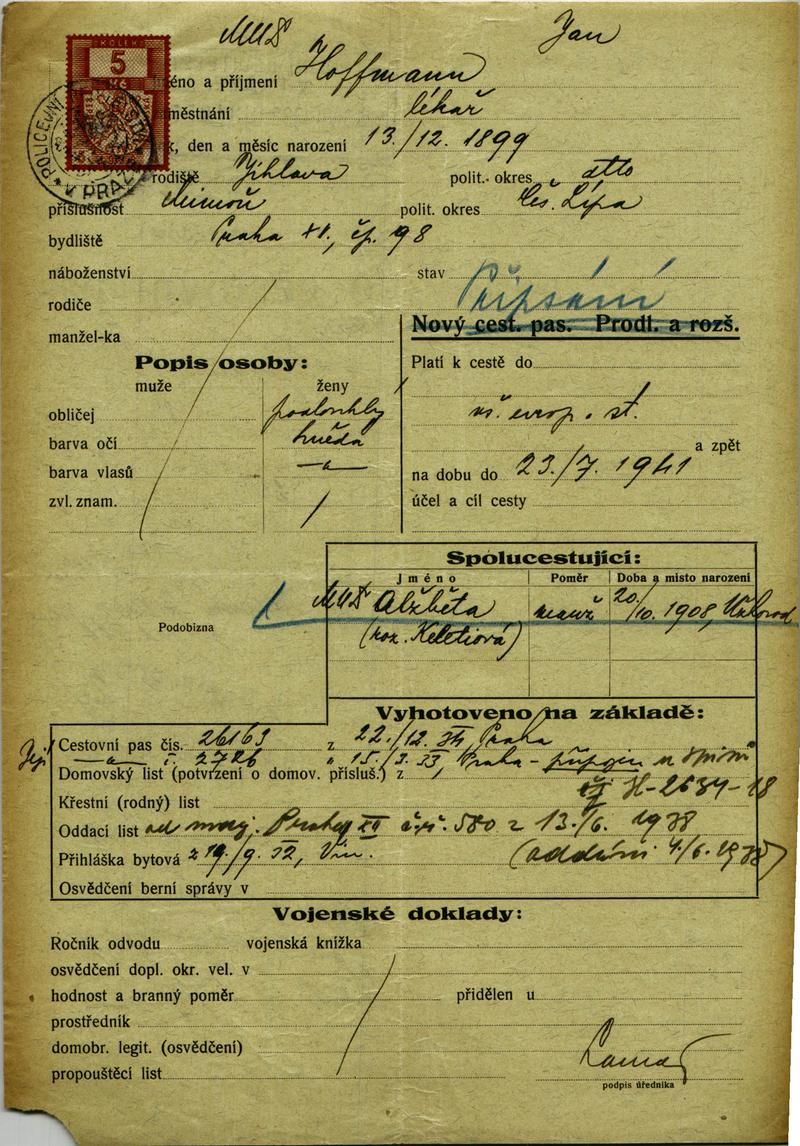 KOLEK
5
Kč
POLICEJNÍ
V PRAZE
MUDr Jan
Jméno a příjmení Hoffmann
zaměstnání lékař
rok, den a měsíc narození 13./12. 1899
rodiště Jihlava polit. okres dtto
příslušnost Mimoň polit. okres Čes. Lípa
bydliště Praha XII, čp. 98
náboženství stav
rodiče Připsání
manžel-ka Nový cest. pas. Prodl. a rozš.
Popis osoby:
muže ženy
obličej podlouhlý
barva očí hnědá
barva vlasů —"—
zvl. znam. /
Platí k cestě do
vš. evrop. st.
a zpět
na dobu do 23./7. 1941
účel a cíl cesty
Podobizna
Spolucestující:
Jméno Poměr Doba a místo narození
MUDr Alžběta manž 20./10. 1908, Užhorod
(roz. Keletiová)
Vyhotoveno na základě:
Cestovní pas čís. 26163 z 22./12. 36, Praha
Její —"— č. 2726 " 15./3. 33, Praha - připojen u spisů
Domovský list (potvrzení o domov. přísluš.) z
Křestní (rodný) list H-2634-18
Oddací list od mag. Prahy XII č.ř. 580 z 13./6. 1938
Přihláška bytová z 19./9. 32, Vin. (oddáni 4/6. 1938)
Osvědčení berní správy v
Vojenské doklady:
Ročník odvodu vojenská knížka
osvědčení dopl. okr. vel. v
hodnost a branný poměr přidělen u
prostředník
domobr. legit. (osvědčení)
propouštěcí list
podpis úředníka